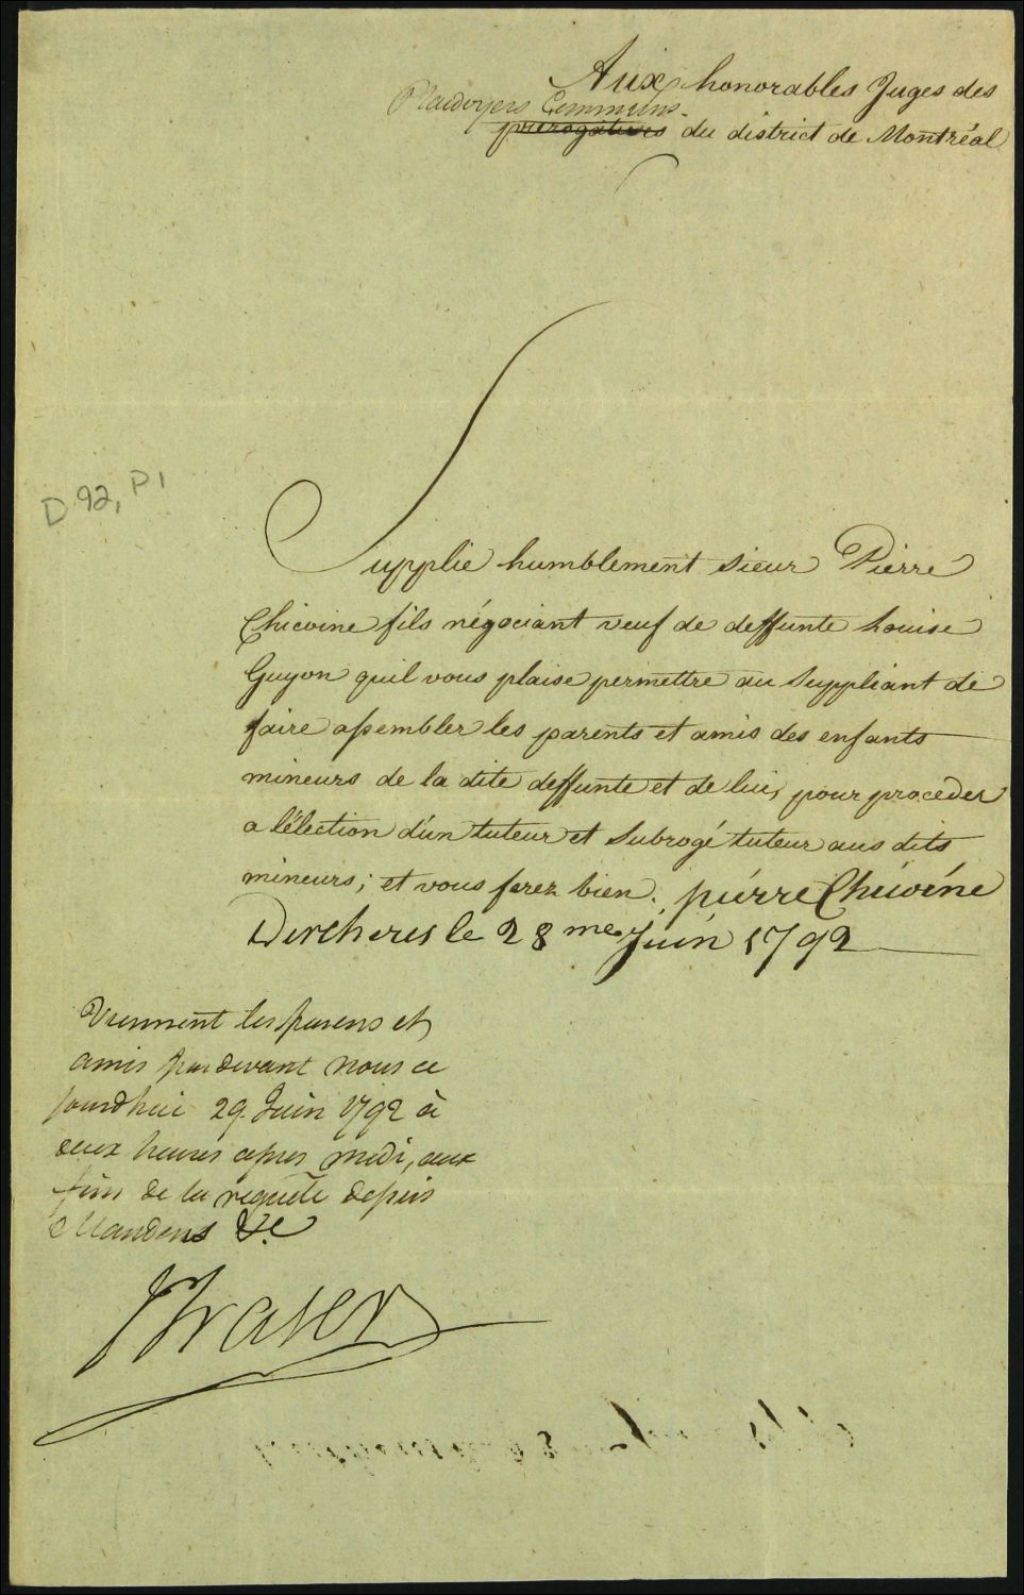 Aux honorables Juges des
Plaidoyers Communs
prerogatives du district de Montréal
D 92, P1
Supplie humblement sieur Pierre
Chicoine fils négociant veuf de deffunte Louise
Guyon quil vous plaise permettre au Suppliant de
faire assembler les parents et amis des enfants
mineurs de la dite deffunte et de lui, pour proceder
a l'élection d'un tuteur et Subrogé tuteur aus dits
mineurs; et vous ferez bien. pierre Chicoine
Vercheres le 28 me Juin 1792
Viennent les parens et
amis pardevant nous ce
jourdhui 29 Juin 1792 à
deux heures apres midi, aux
fins de la requête
Mandons &c
Fraser